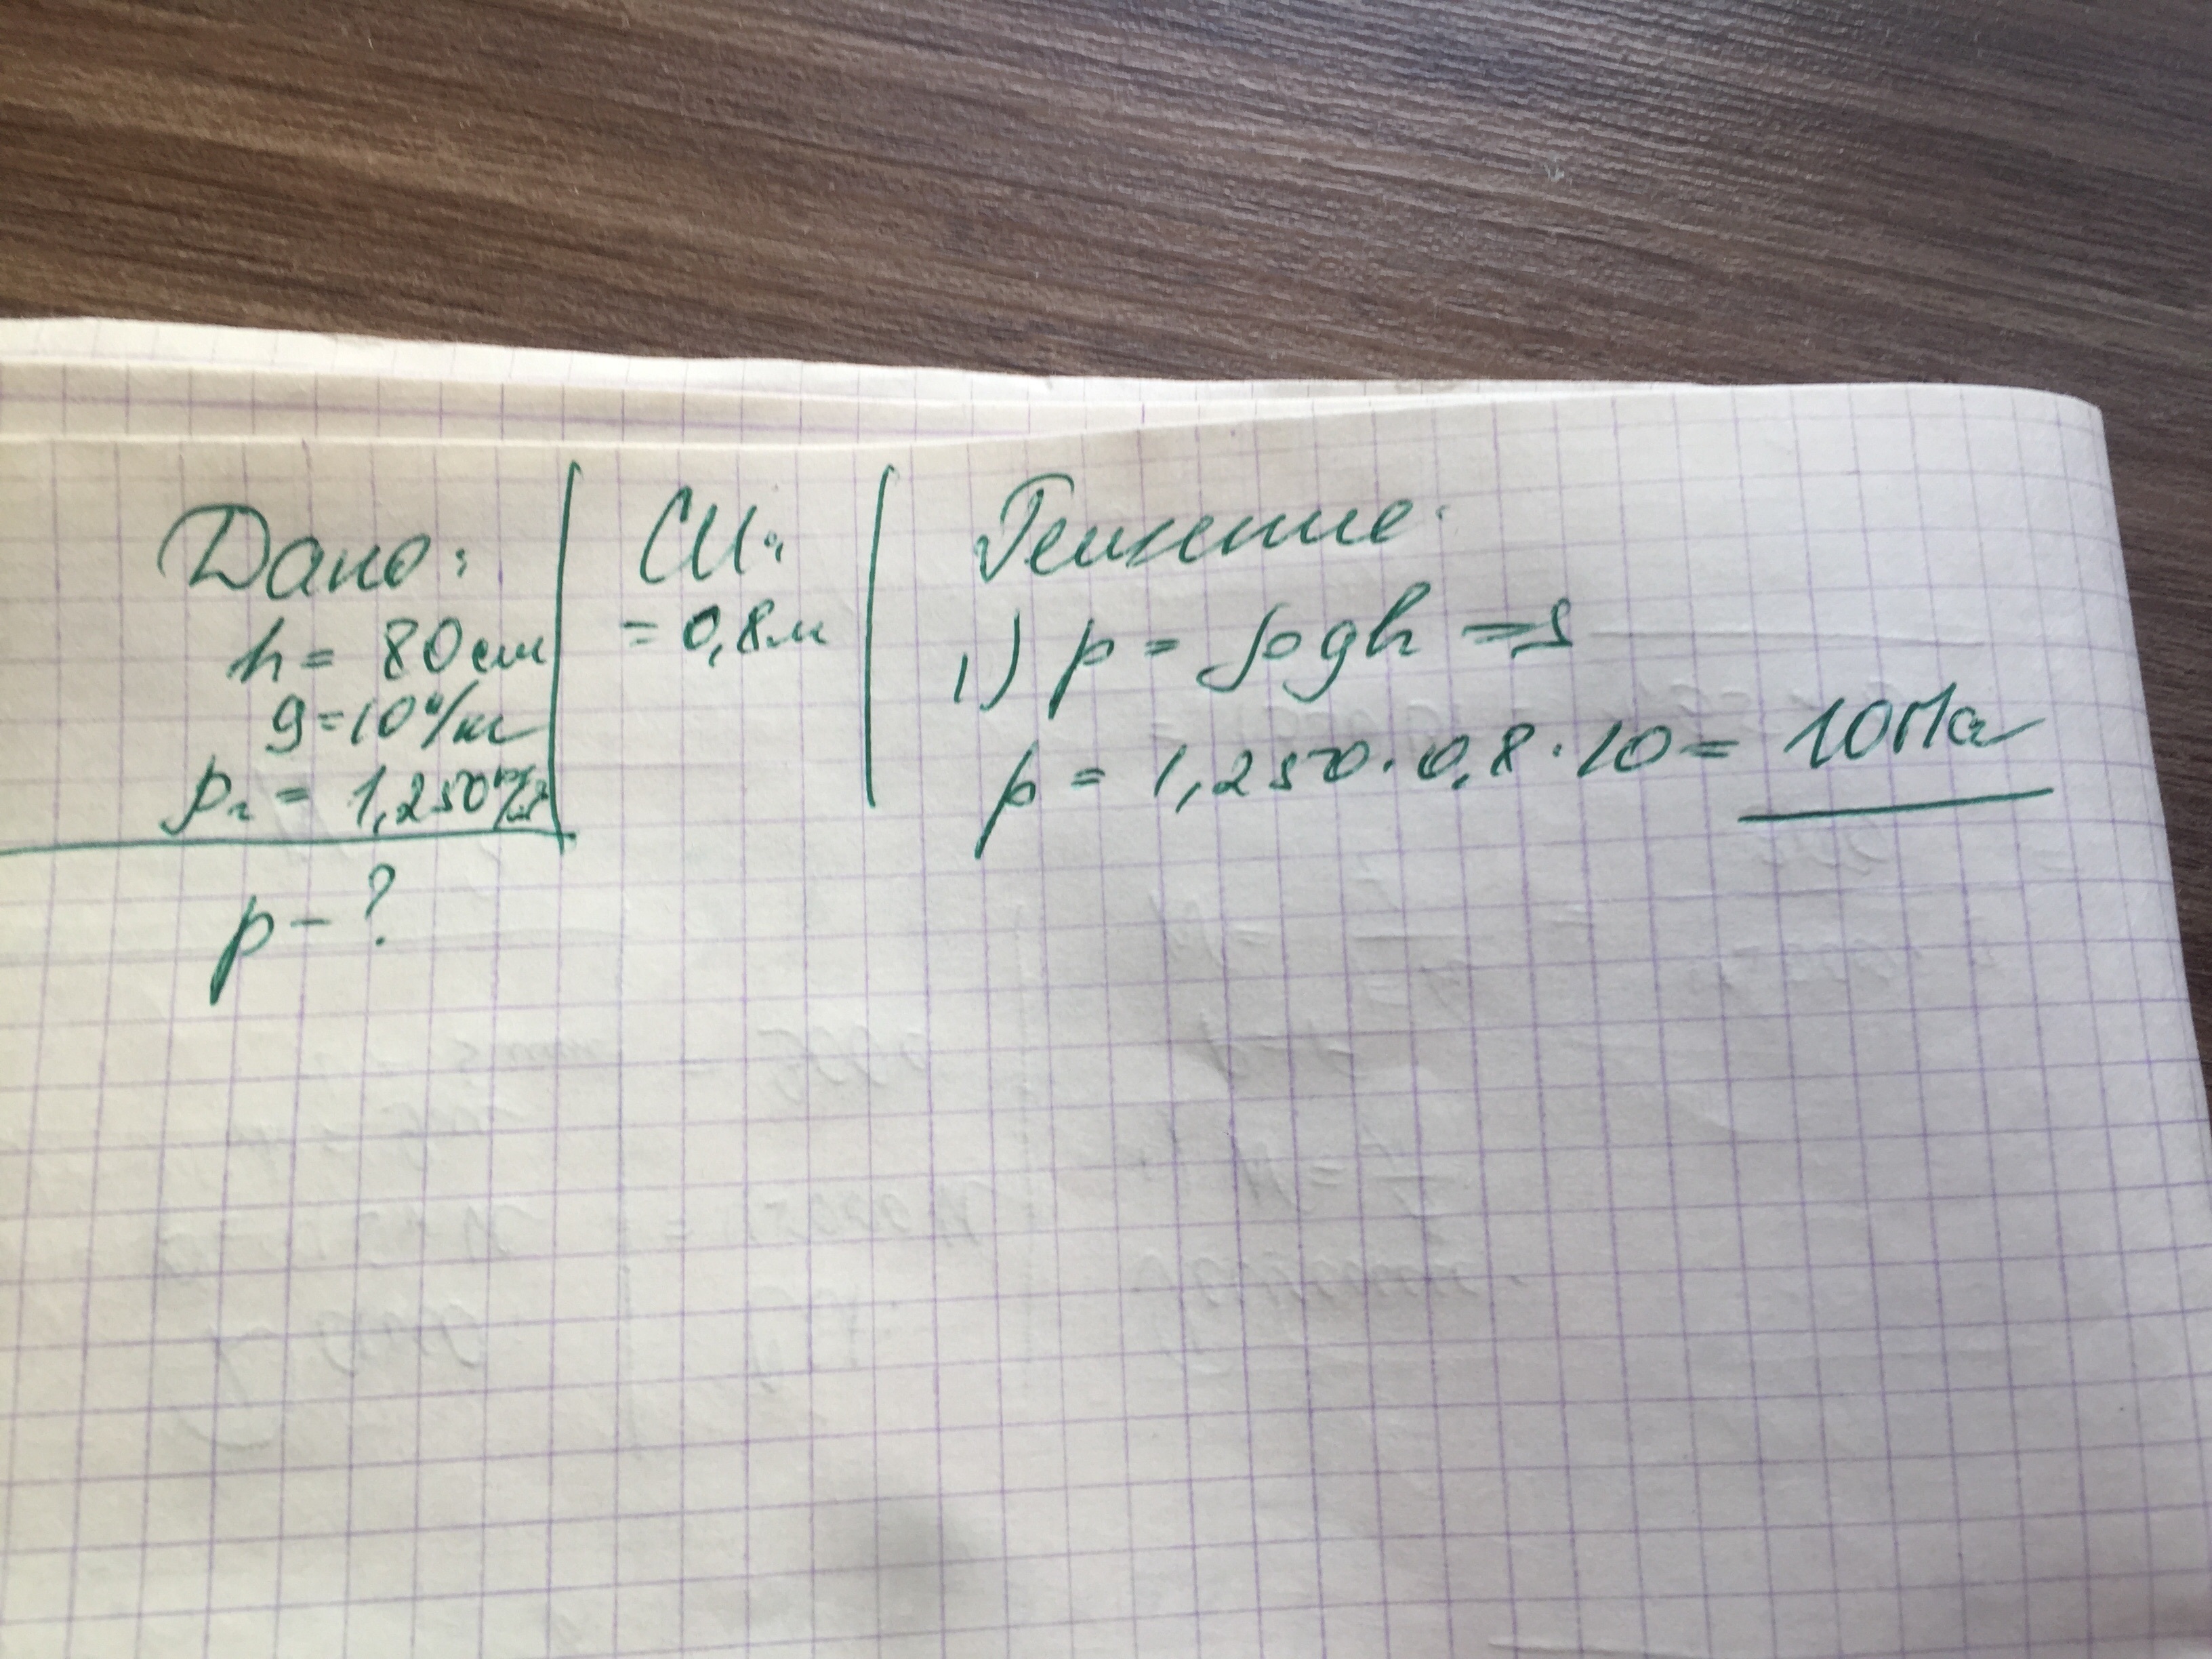 Дано:
h = 80 см
g = 10 Н/кг
ρг = 1,250 кг/м³
p – ?
СИ:
= 0,8 м
Решение:
1) p = ρgh =>
p = 1,250 · 0,8 · 10 = 10 Па